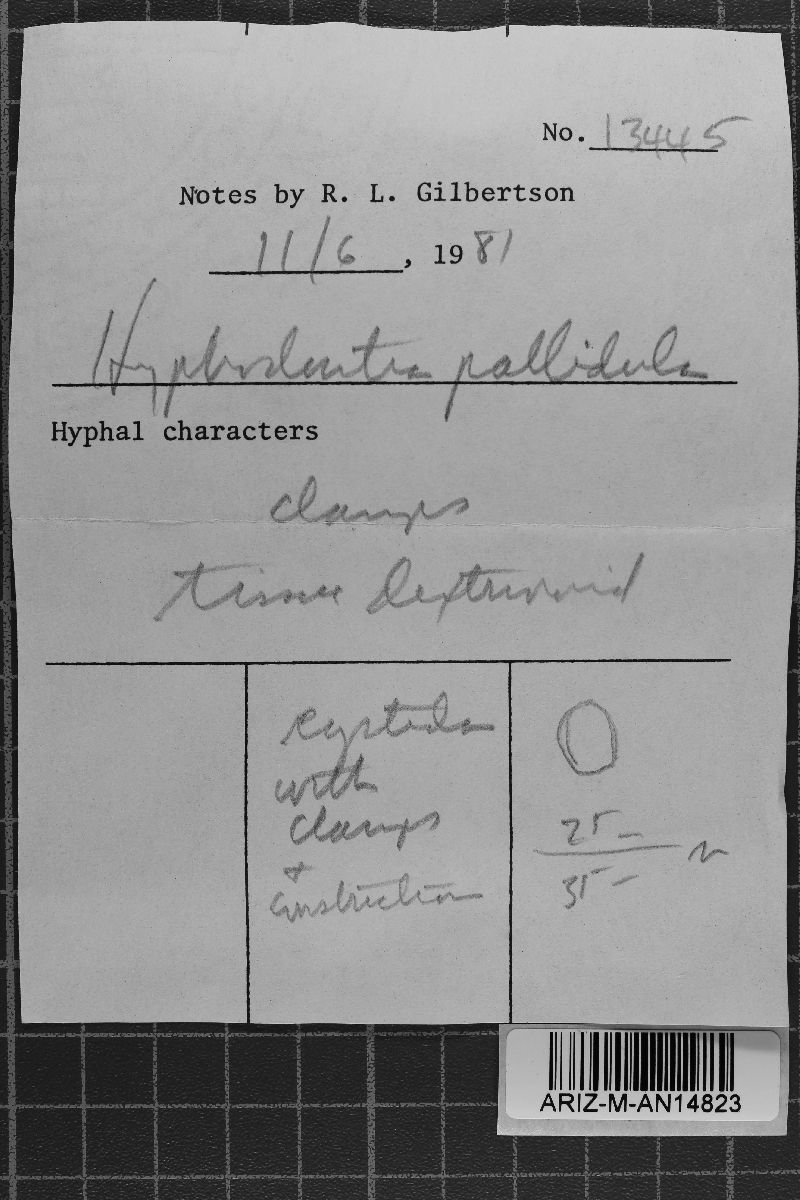 No. 13445
Notes by R. L. Gilbertson
11/6, 1981
Hyphodontia pallidula
Hyphal characters
clamps
tissue dextrinoid
cystidia
with
clamps
+
constriction
25 –
35 –
ARIZ-M-AN14823